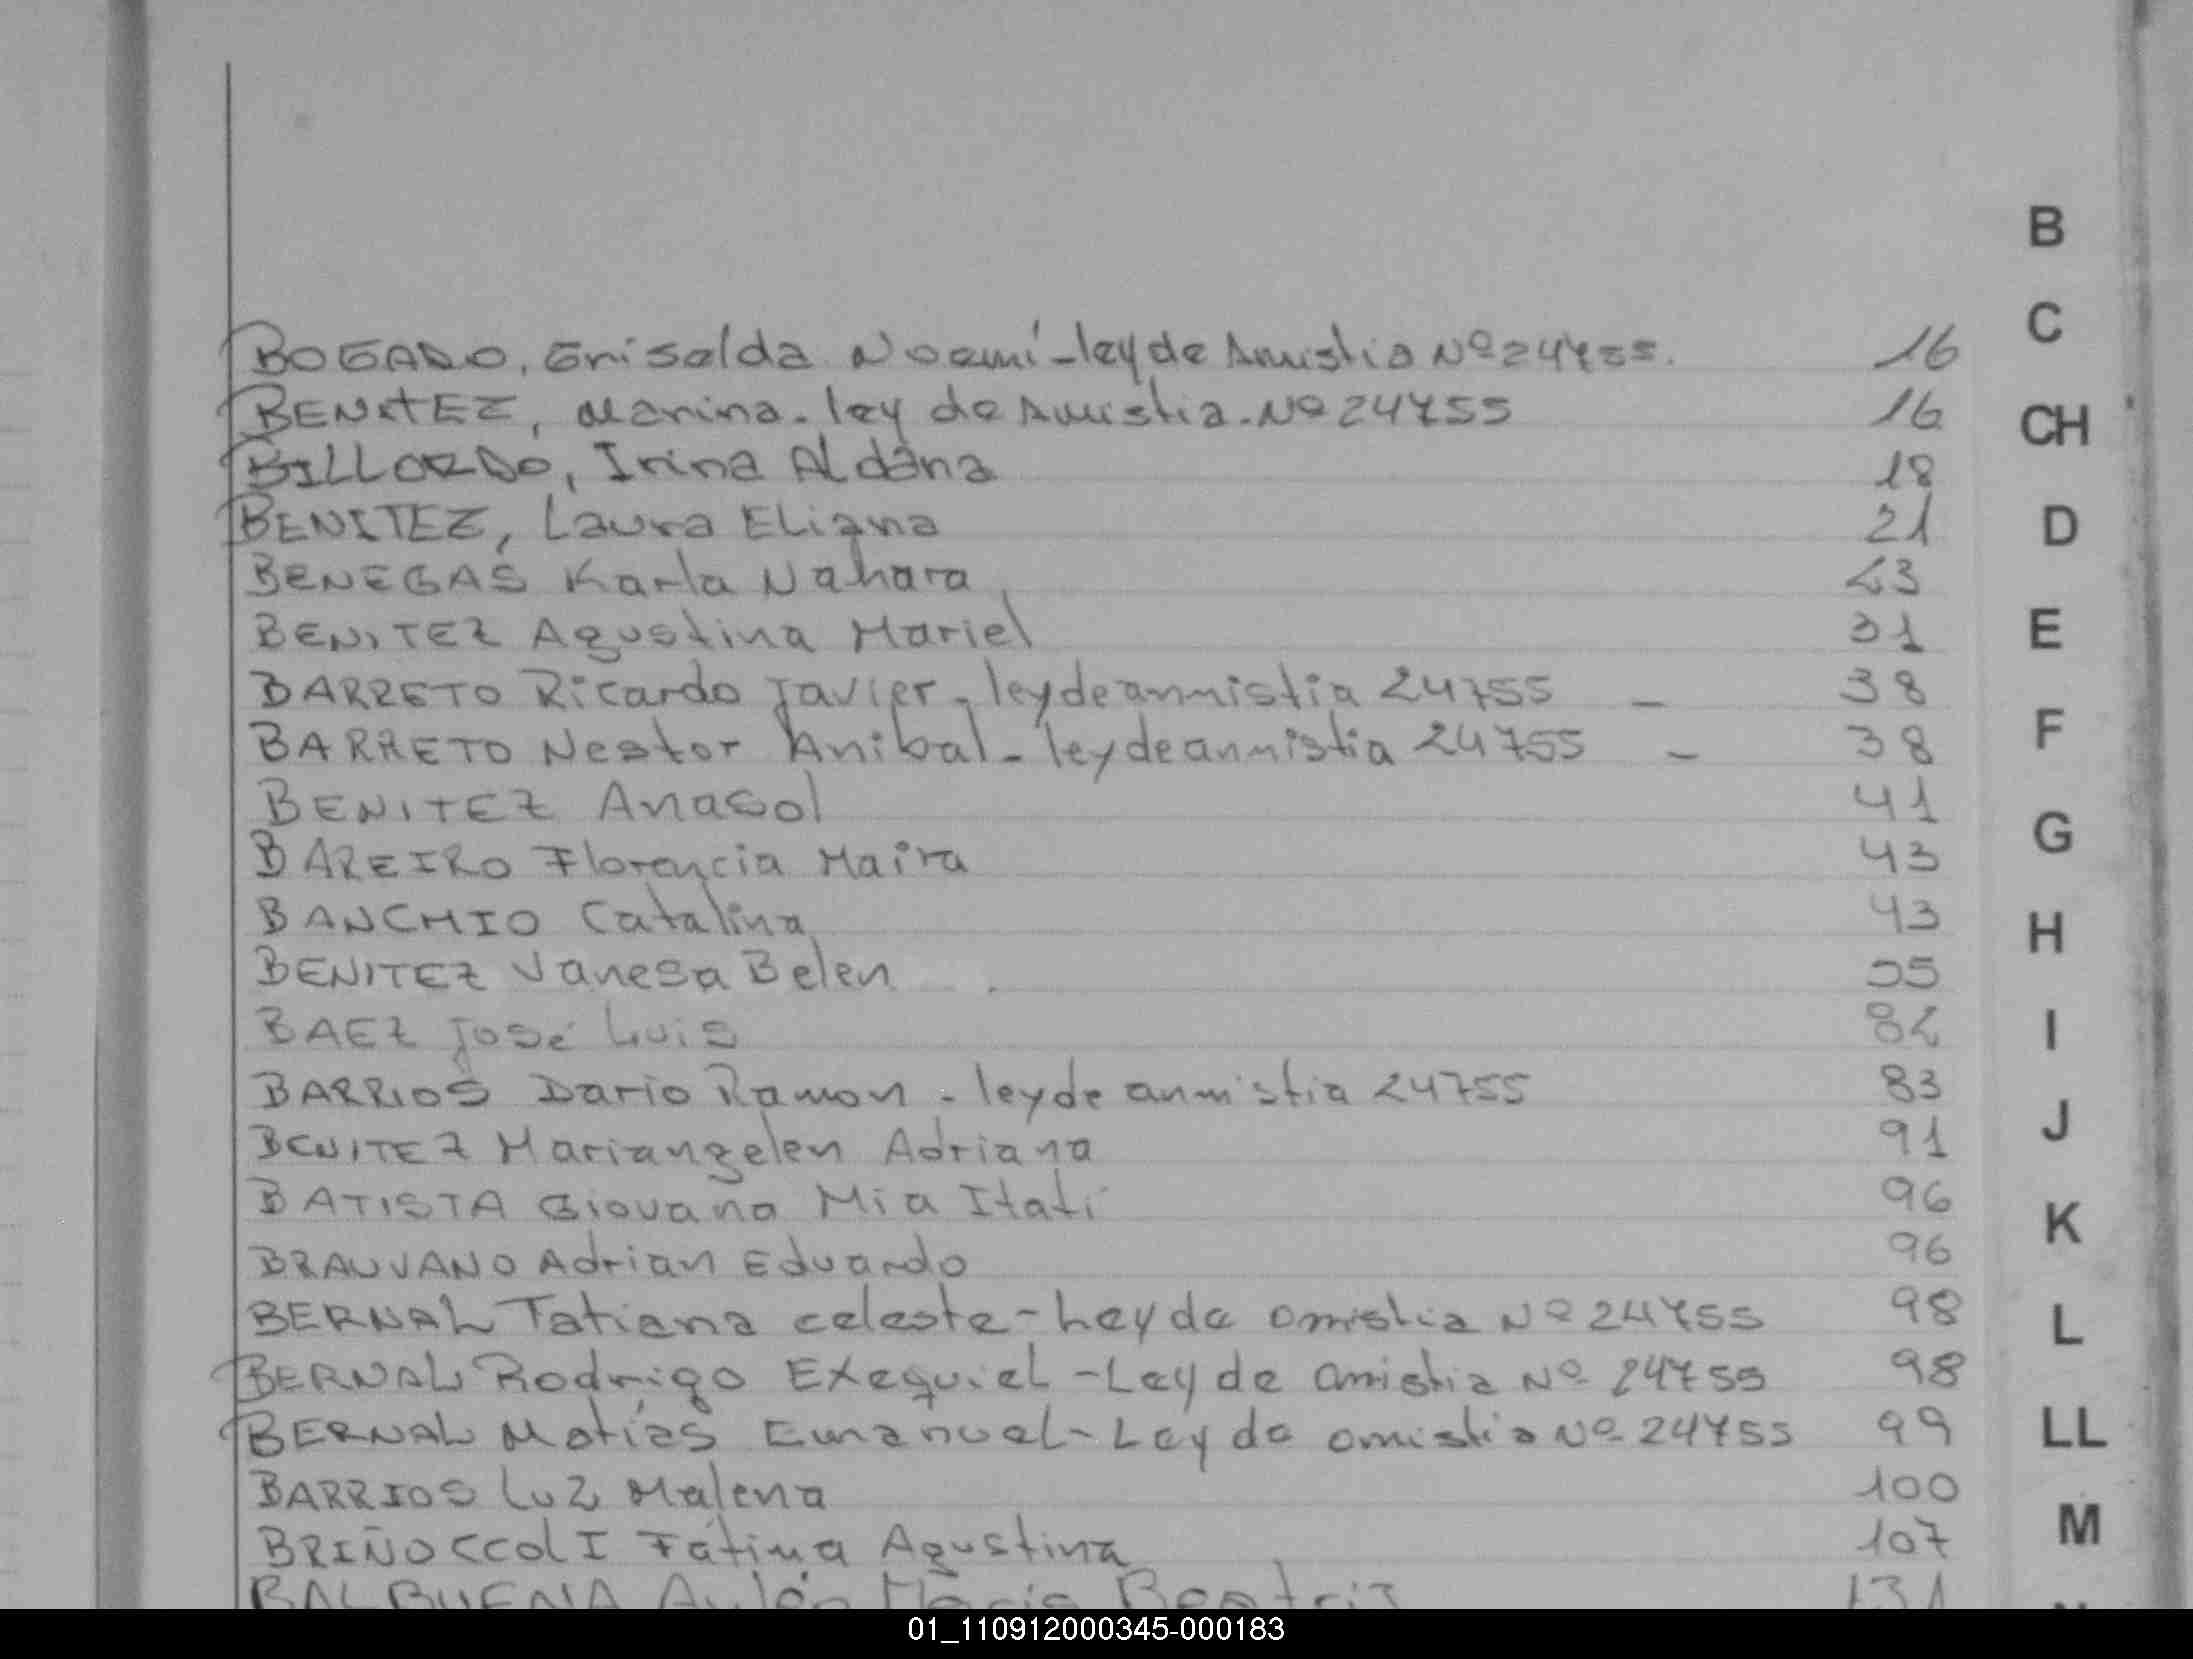 BOGADO, Griselda Noemí - ley de Amistia Nº 24755. 16
BENITEZ, Marina - ley de Amistia - Nº 24755 16
BILLORDO, Irina Aldana 18
BENITEZ, Laura Eliana 21
BENEGAS Karla Nahara 23
BENITEZ Agustina Mariel 31
BARRETO Ricardo Javier - ley de anmistia 24755 - 38
BARRETO Nestor Anibal - ley de anmistia 24755 - 38
BENITEZ Anasol 41
BAREIRO Florencia Maira 43
BANCHIO Catalina 43
BENITEZ Vanesa Belen 55
BAEZ José Luis 82
BARRIOS Dario Ramon - ley de anmistia 24755 83
BENITEZ Mariangelen Adriana 91
BATISTA Giovana Mia Itatí 96
BRAUVANO Adrian Eduardo 96
BERNAL Tatiana celeste - Ley de amistia Nº 24755 98
BERNAL Rodrigo Exequiel - Ley de amistia Nº 24755 98
BERNAL Matías Emanuel - Ley de amistia Nº 24755 99
BARRIOS Luz Malena 100
BRIÑOCCOLI Fátima Agustina 107
BALBUENA María Beatriz 131
B
C
CH
D
E
F
G
H
I
J
K
L
LL
M
01_110912000345-000183